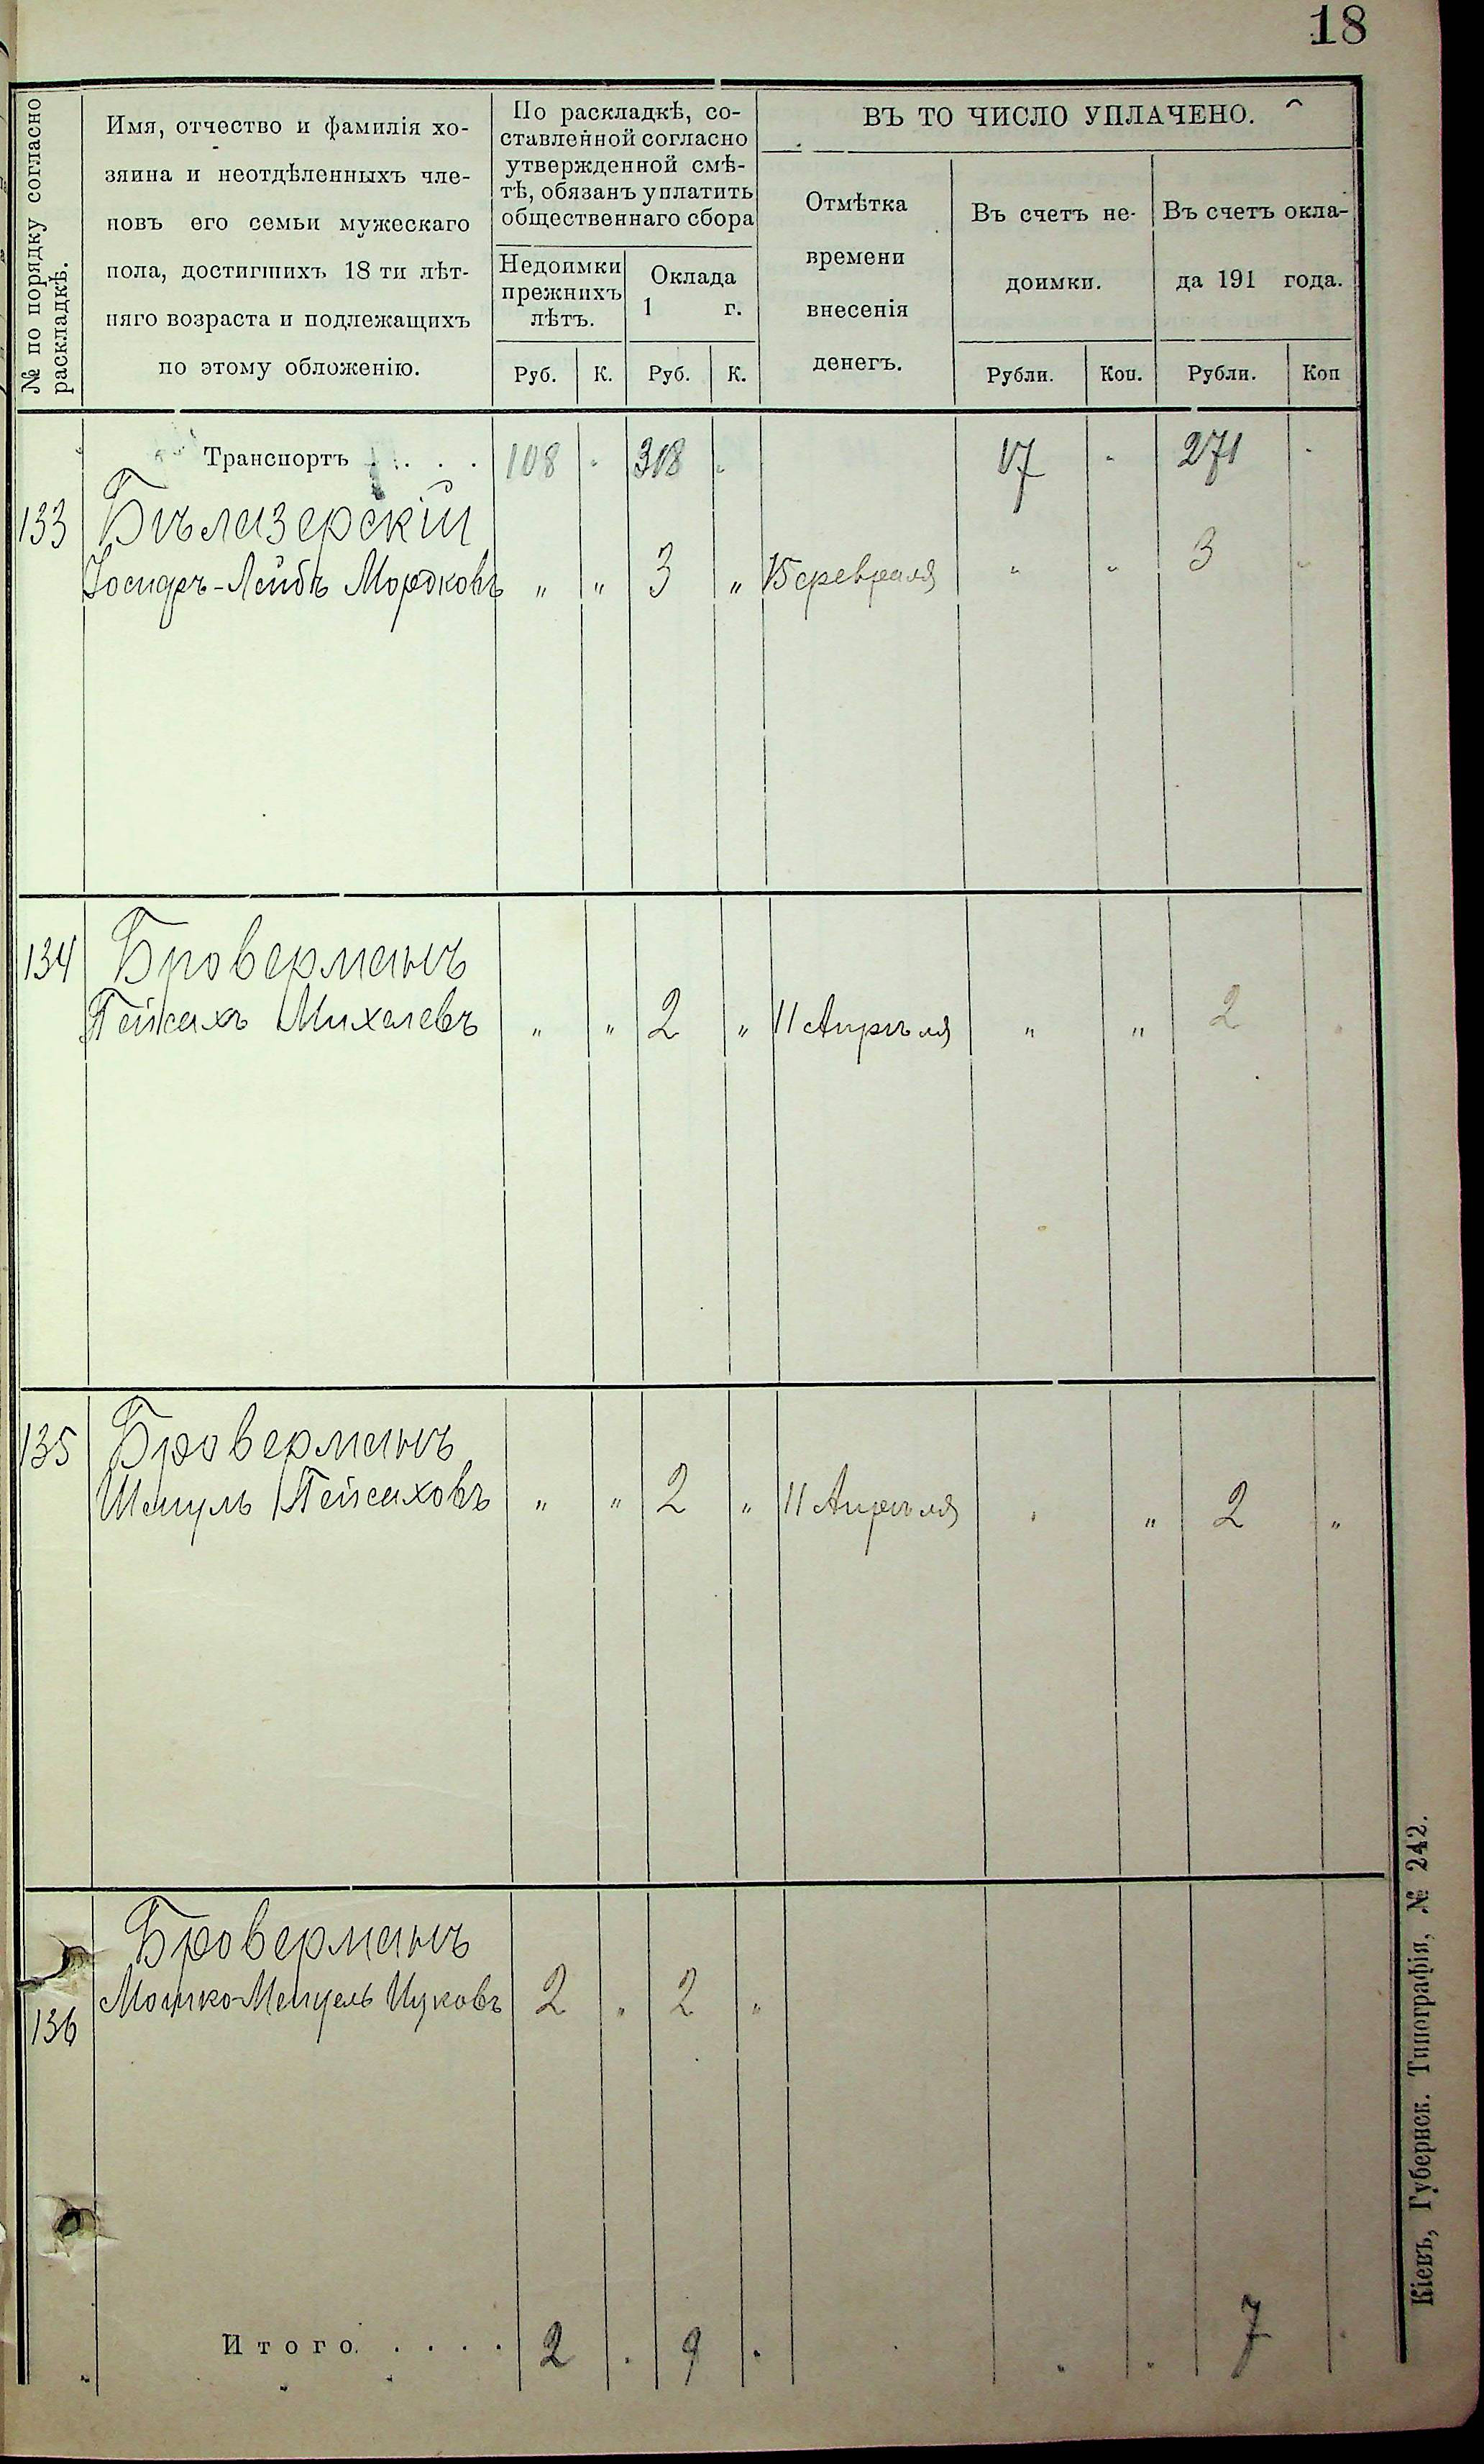 18
№ по порядку согласно
раскладкѣ.
Имя, отчество и фамилія хо-
зяина и неотдѣленныхъ чле-
новъ его семьи мужескаго
пола, достигшихъ 18 ти лѣт-
няго возраста и подлежащихъ
по этому обложенію.
По раскладкѣ, со-
ставленной согласно
утвержденной смѣ-
тѣ, обязанъ уплатить
общественнаго сбора
Недоимки
прежнихъ
лѣтъ.
Оклада
1 г.
Руб. К. Руб. К.
ВЪ ТО ЧИСЛО УПЛАЧЕНО.
Отмѣтка
времени
внесенія
денегъ.
Въ счетъ не-
доимки.
Въ счетъ окла-
да 191 года.
Рубли. Коп. Рубли. Коп
Транспортъ . . . . 108 " 318 " 17 " 271 "
133 Бѣлазерскій
Іосифъ-Лейбъ Мордковъ " " 3 " 15 февраля " " 3 "
134 Броверманъ
Пейсахъ Михелевъ " " 2 " 11 Апрѣля " " 2 "
135 Броверманъ
Шмуль Пейсаховъ " " 2 " 11 Апрѣля " " 2 "
136 Броверманъ
Мошко-Мендель Ицковъ 2 " 2 "
Итого. . . . . 2 . 9 . . . 7 .
Кіевъ, Губернск. Типографія, № 242.